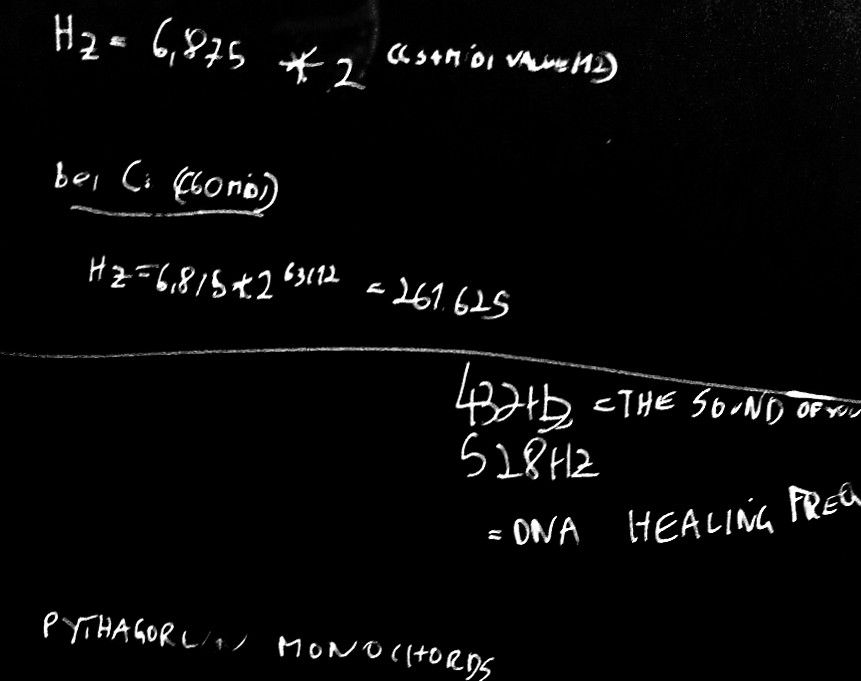 Hz = 6,875 * 2 ((3+MIDI VALUE)/12)
bei C: (60 MIDI)
Hz = 6,875 * 2 63/12 = 261.625
432Hz = THE SOUND OF YOU
528Hz
= DNA HEALING FREQ
MONOCHORDS